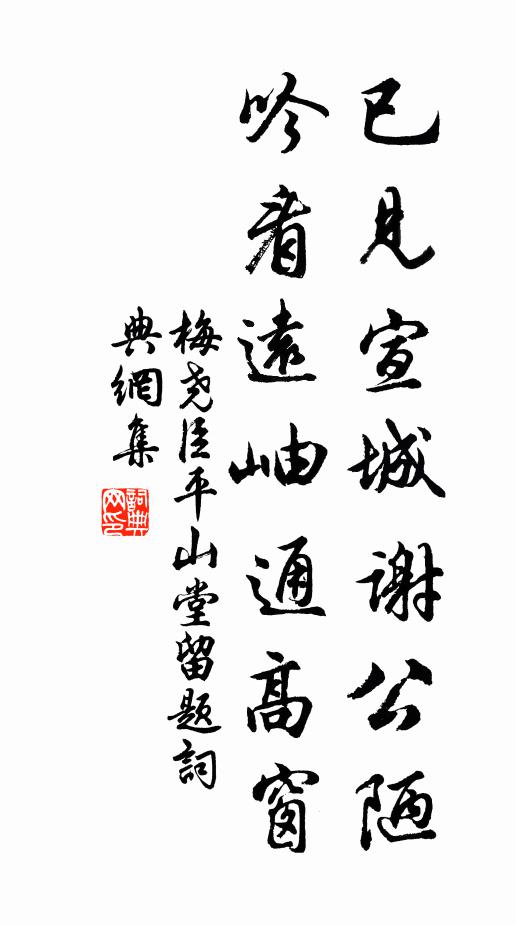 已見宣城謝公陋
吟看遠岫通高窗
梅堯臣平山堂留題詞
典網集
詞典网印